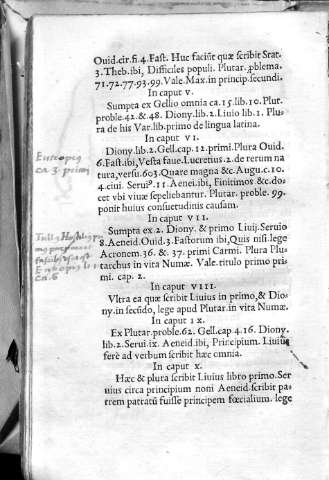 Ouid.cir.fi.4.Fast. Huc faciũt quæ scribit Srat.
3.Theb.ibi, Difficiles populi. Plutar.ꝓblema.
71.72.77.93.99.Vale.Max.in princip.secundi.
In caput v.
Sumpta ex Gellio omnia ca.15.lib.10.Plut.
proble.42.&.48. Diony.lib.2.Liuio lib.1. Plu
ra de his Var.lib.primo de lingua latina.
In caput VI.
Diony.lib.2.Gell.cap.12.primi.Plura Ouid.
6.Fast.ibi,Vesta faue.Lucretius.2.de rerum na
tura,versu.603.Quare magna &c.Aug.c.10.
4.ciui. Serui⁹.11.Aenei.ibi, Finitimos &c.do-
cet vbi viuæ sepeliebantur. Plutar. proble. 99.
ponit huius consuetudinis causam.
In caput VII.
Sumpta ex 2. Diony. & primo Liuij.Seruio
8.Aeneid.Ouid.3.Fastorum ibi,Quis nisi.lege
Acronem.36.&.37. primi Carmi. Plura Plu-
tarchus in vita Numæ. Vale.titulo primo pri-
mi. cap. 2.
In caput VIII.
Vltra ea quæ scribit Liuius in primo,& Dio
ny.in secũdo, lege apud Plutar.in vita Numæ.
In caput IX.
Ex Plutar.proble.62. Gell.cap 4.16. Diony.
lib.2.Serui.ix. Aeneid.ibi, Principium. Liuius
ferè ad verbum scribit hæc omnia.
In caput x.
Hæc & plura scribit Liuius libro primo.Ser
uius circa principium noni Aeneid.scribit pa-
trem patratũ fuisse principem fœcialium. lege
Eutropeq
ca 3. primi
ca.6